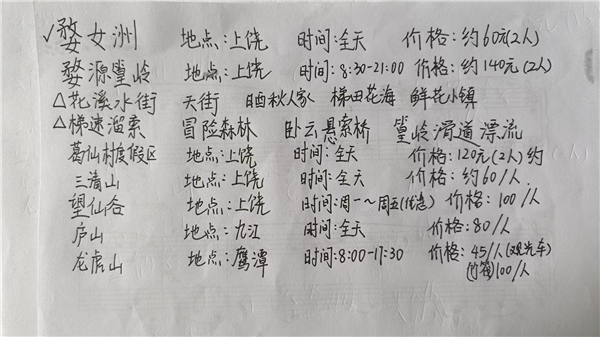 ✓婺女洲 地点:上饶 时间:全天 价格:约60元(2人)
婺源篁岭 地点:上饶 时间:8:30-21:00 价格:约140元(2人)
△花溪水街 天街 晒秋人家 梯田花海 鲜花小镇
△梯速溜索 冒险森林 卧云悬索桥 篁岭滑道漂流
葛仙村度假区 地点:上饶 时间:全天 价格:120元(2人)约
三清山 地点:上饶 时间:全天 价格:约60/人
望仙谷 地点:上饶 时间:周一~周五(优惠) 价格:100/人
庐山 地点:九江 时间:全天 价格:80/人
龙虎山 地点:鹰潭 时间:8:00-17:30 价格:45/人(观光车)
(竹筏)100/人